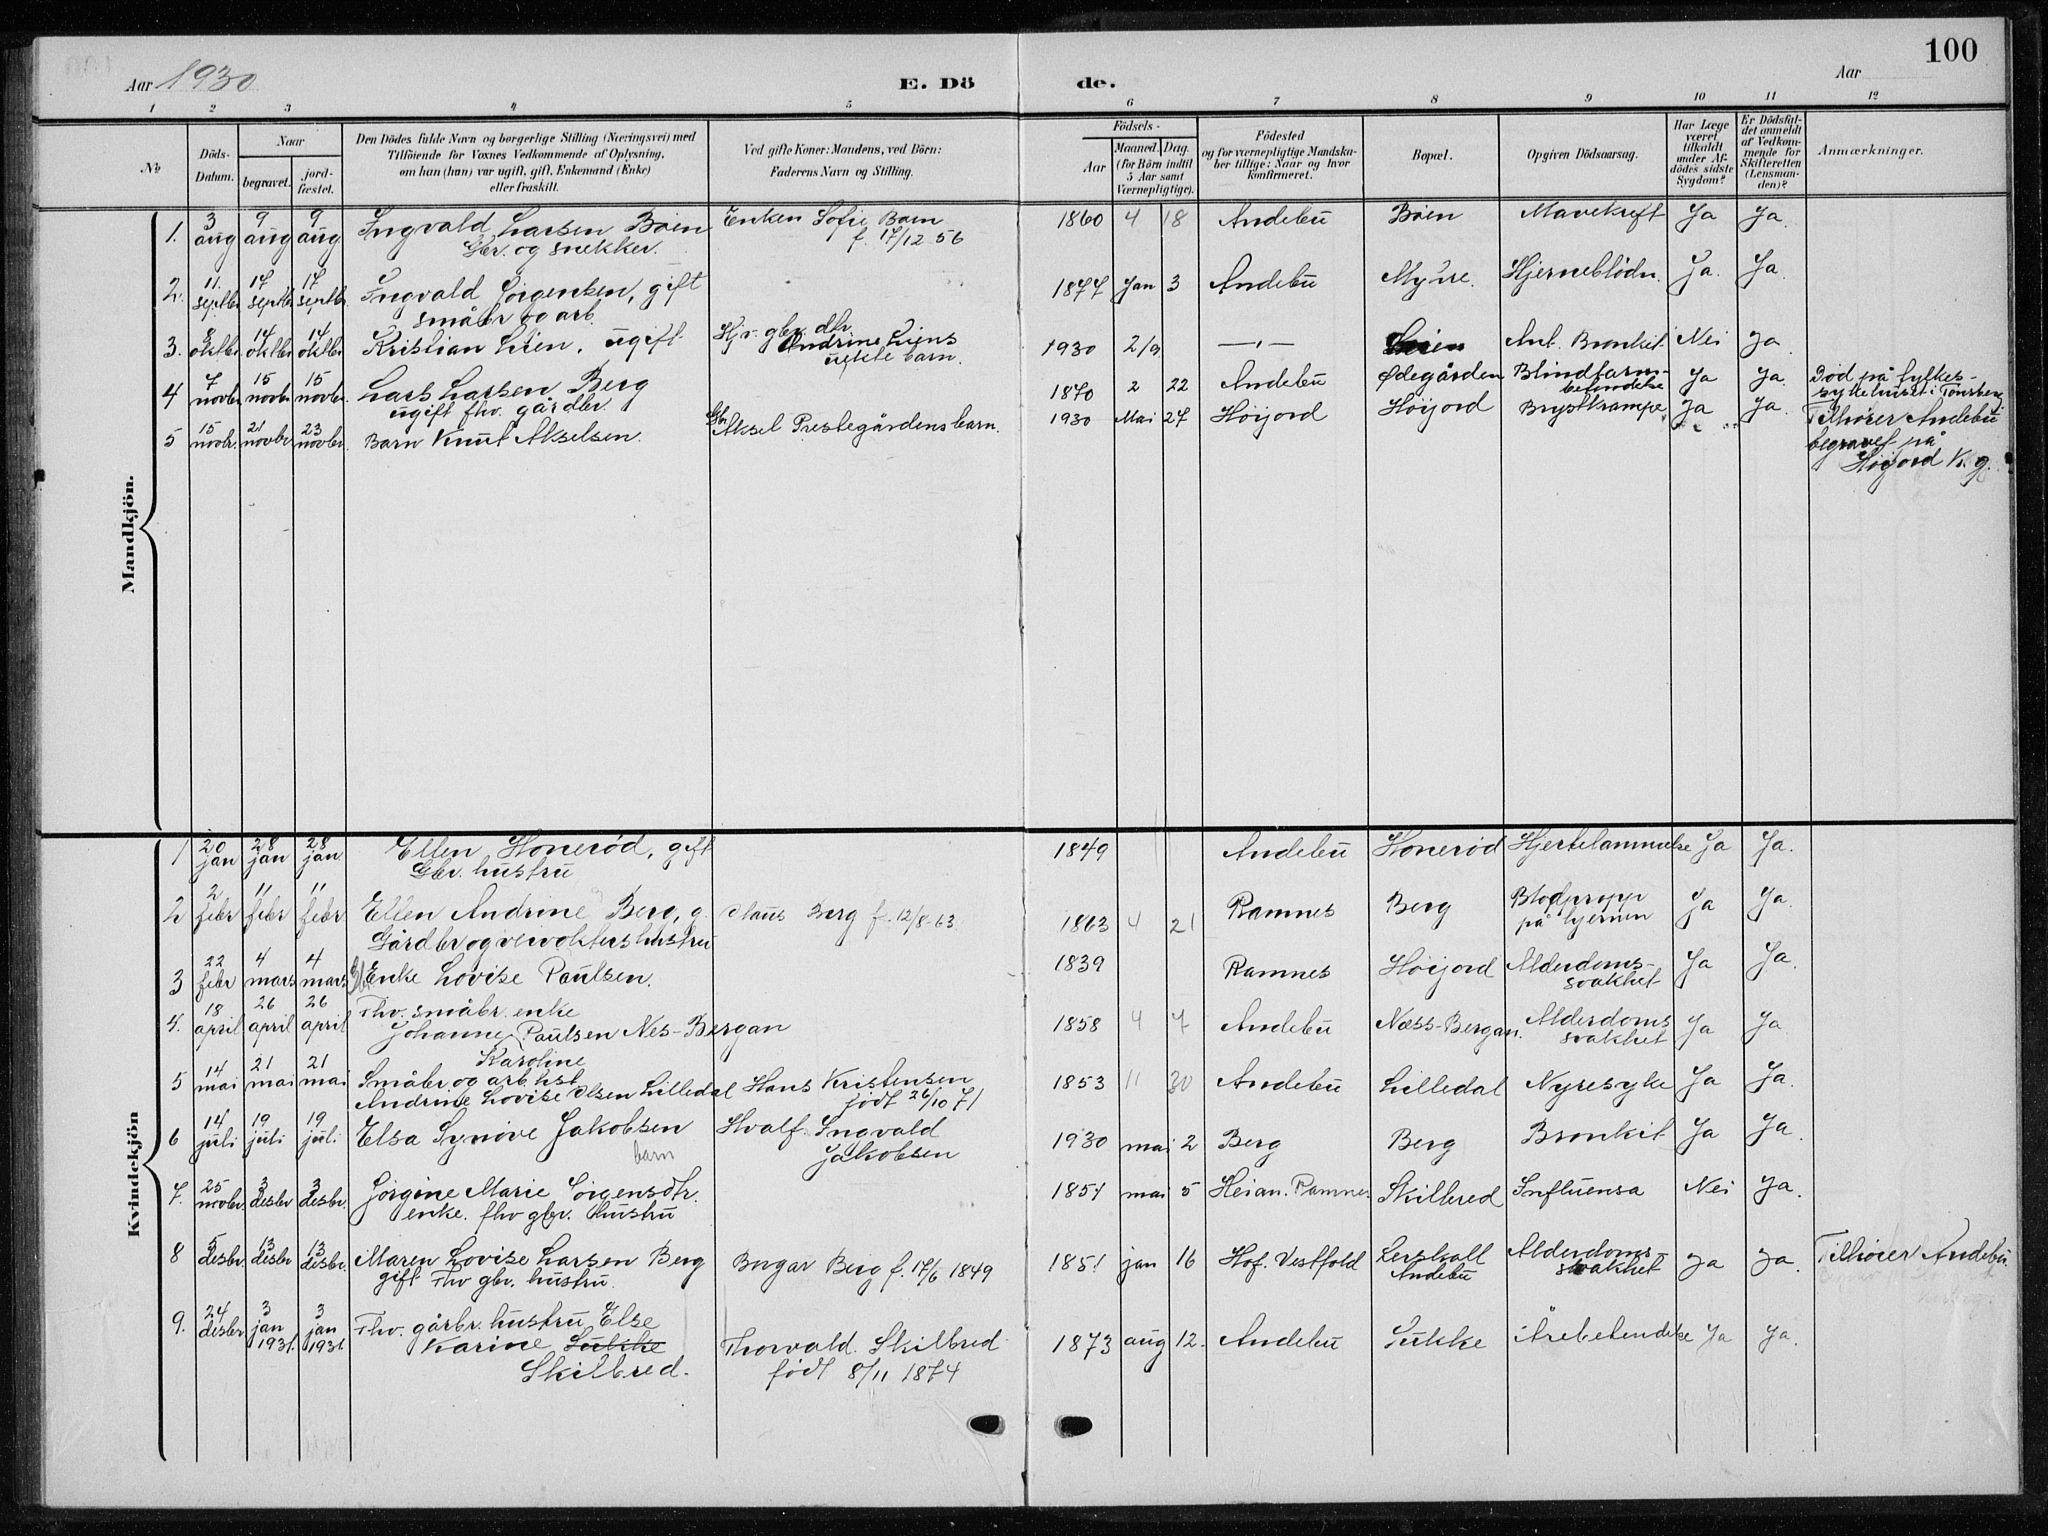 100
Aar 1930
E. Döde.
Aar
1 2 3 4 5 6 7 8 9 10 11 12
No
Döds-Datum.
Naar
begravet.
jord-fæstet.
Den Dödes fulde Navn og borgerlige Stilling (Næringsvei) med
Tilföiende for Voxnes Vedkommende af Oplysning,
om han (hun) var ugift, gift, Enkemand (Enke)
eller fraskilt.
Ved gifte Koner: Mandens, ved Börn:
Faderens Navn og Stilling.
Födsels-
Aar
Maaned. Dag.
(for Börn indtil
5 Aar samt
Værnepligtige).
Födested
og for værnepligtige Mandska-
ber tillige: Naar og hvor
konfirmeret.
Bopæl.
Opgiven Dödsaarsag.
Har Læge
været
tilkaldt
under Af-
dødes sidste
Sygdom?
Er Dödsfal-
det anmeldt
af Vedkom-
mende for
Skifteretten
(Lensman-
den)?
Anmærkninger.
Mandkjön.
1. 3 aug 9 aug 9 aug. Ingvald Larsen Böen Enken Sofie Bøen 1860 4 18 Andebu Böen Mavekreft Ja Ja.
Gbr. og snekker. f. 17/12 56
2. 11. septbr 17 septbr 17 septbr. Ingvald Jörgensen, gift 1877 Jan 3 Andebu Myhre. Hjerneblödn. Ja. Ja.
småbr og arb.
3. 8 oktbr. 14 oktbr 14 oktbr. Kristian Lien, ugift Hj.v. gbr. dtr. Andrine Liens 1930 2/9 —"— Lien Ant. Bronkit Nei Ja
uekte barn.
4 7 novbr. 15 novbr. 15 novbr. Lars Larsen Berg 1870 2 22 Andebu Ødegården Blindtarms- Ja Ja. Död på fylkes-
ugift fhv. gårdbr. betendelse sykehuset i Tönsberg
5 15 novbr. 21 novbr 23 novbr. Barn Knut Akselsen. Gbr. Aksel Prestegårdens barn. 1930 Mai 27 Höijord Höijord Brystkrampe Ja Ja. Tilhörer Andebu
begravet på
Höijord K.g.
Kvindekjön
1 20 jan 28 jan 28 jan Ellen Honerød, gift 1849 Andebu Honerød Hjertelammelse Ja Ja.
Gbr. hustru
2 2 febr 11 febr 11 febr Ellen Andrine Berg, g. Claus Berg f. 12/8-63. 1863 4 21 Ramnes Berg Blodpropp Ja Ja.
Gårdbr og veivokters hustru på hjernen
3 22 febr 4 mars 4 mars Enke Lovise Paulsen. 1839 Ramnes Höijord Alderdoms- Ja Ja.
svakhet
4. 18 april 26 april 26 april Fhv. småbr. enke
Johanne Karoline Paulsen Nes-Bergan 1858 4 7 Andebu Næss-Bergan. Alderdoms Ja Ja.
svakhet
5 14 mai 21 mai 21 mai Småbr og arb. hst.
Andrine Lovise Olsen Lilledal Hans Kristensen 1853 11 30 Andebu Lilledal Nyresyke Ja Ja.
födt 26/10 71
6 14 juli 19 juli 19 juli Elsa Synöve Jakobsen Hvalf. Ingvald 1930 mai 2 Berg Berg Bronkit Ja Ja.
barn Jakobsen
7. 25 novbr. 3 desbr 3 desbr. Jörgine Marie Jörgensdtr. 1851 mai 5 Heian. Ramnes Skilbred Influensa Nei Ja.
enke. fhv gbr. hustru
8 5 desbr. 13 desbr 13 desbr. Maren Lovise Larsen Berg Borgar Berg f. 17/6 1849 1851 jan 16 Hof. Vestfold Lerskall Alderdoms Ja Ja. Tilhörer Andebu.
gift Fhv gbr. hustru. Andebu svakhet
9. 24 desbr 3 jan 1931. 3 jan 1931. Fhv. gårbr. hustru Else
Karine Sukke Thorvald Skilbred 1873 aug 12. Andebu Sukke Årebetendelse Ja Ja.
Skilbred. födt 8/11 1874